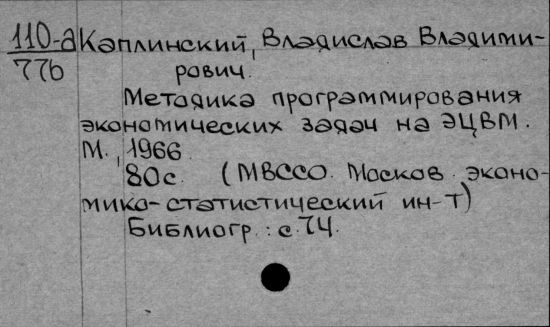 110-а Каплинский, Владислав Владими-
776 рович.
Методика программирования
экономических задач на ЭЦВМ.
М., 1966.
80с. (МВССО. Москов. эконо-
мико-статистический ин-т)
Библиогр.: с.74.